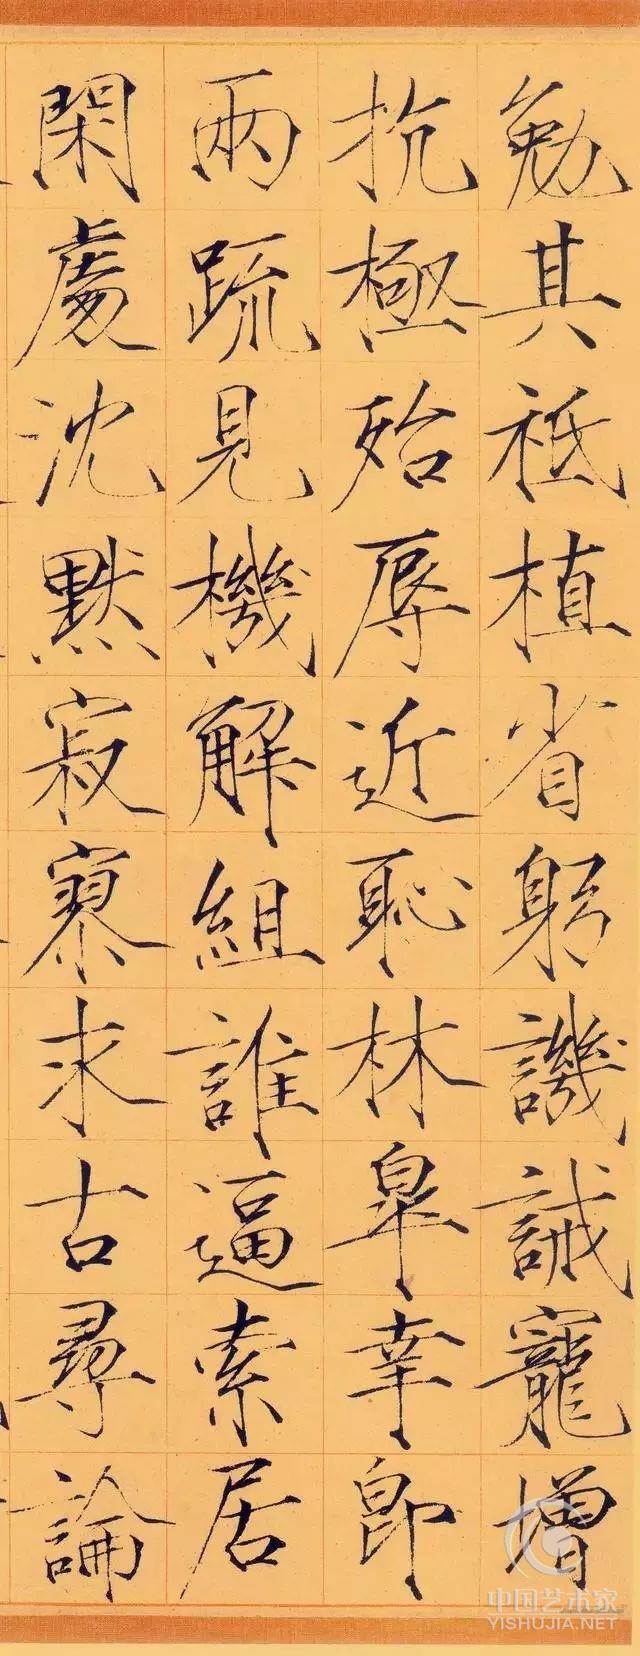 勉其祗植省躬譏誡寵增
抗極殆辱近恥林皋幸即
兩疏見機解組誰逼索居
閑處沈默寂寥求古尋論
中国艺术家
YISHUJIA.NET